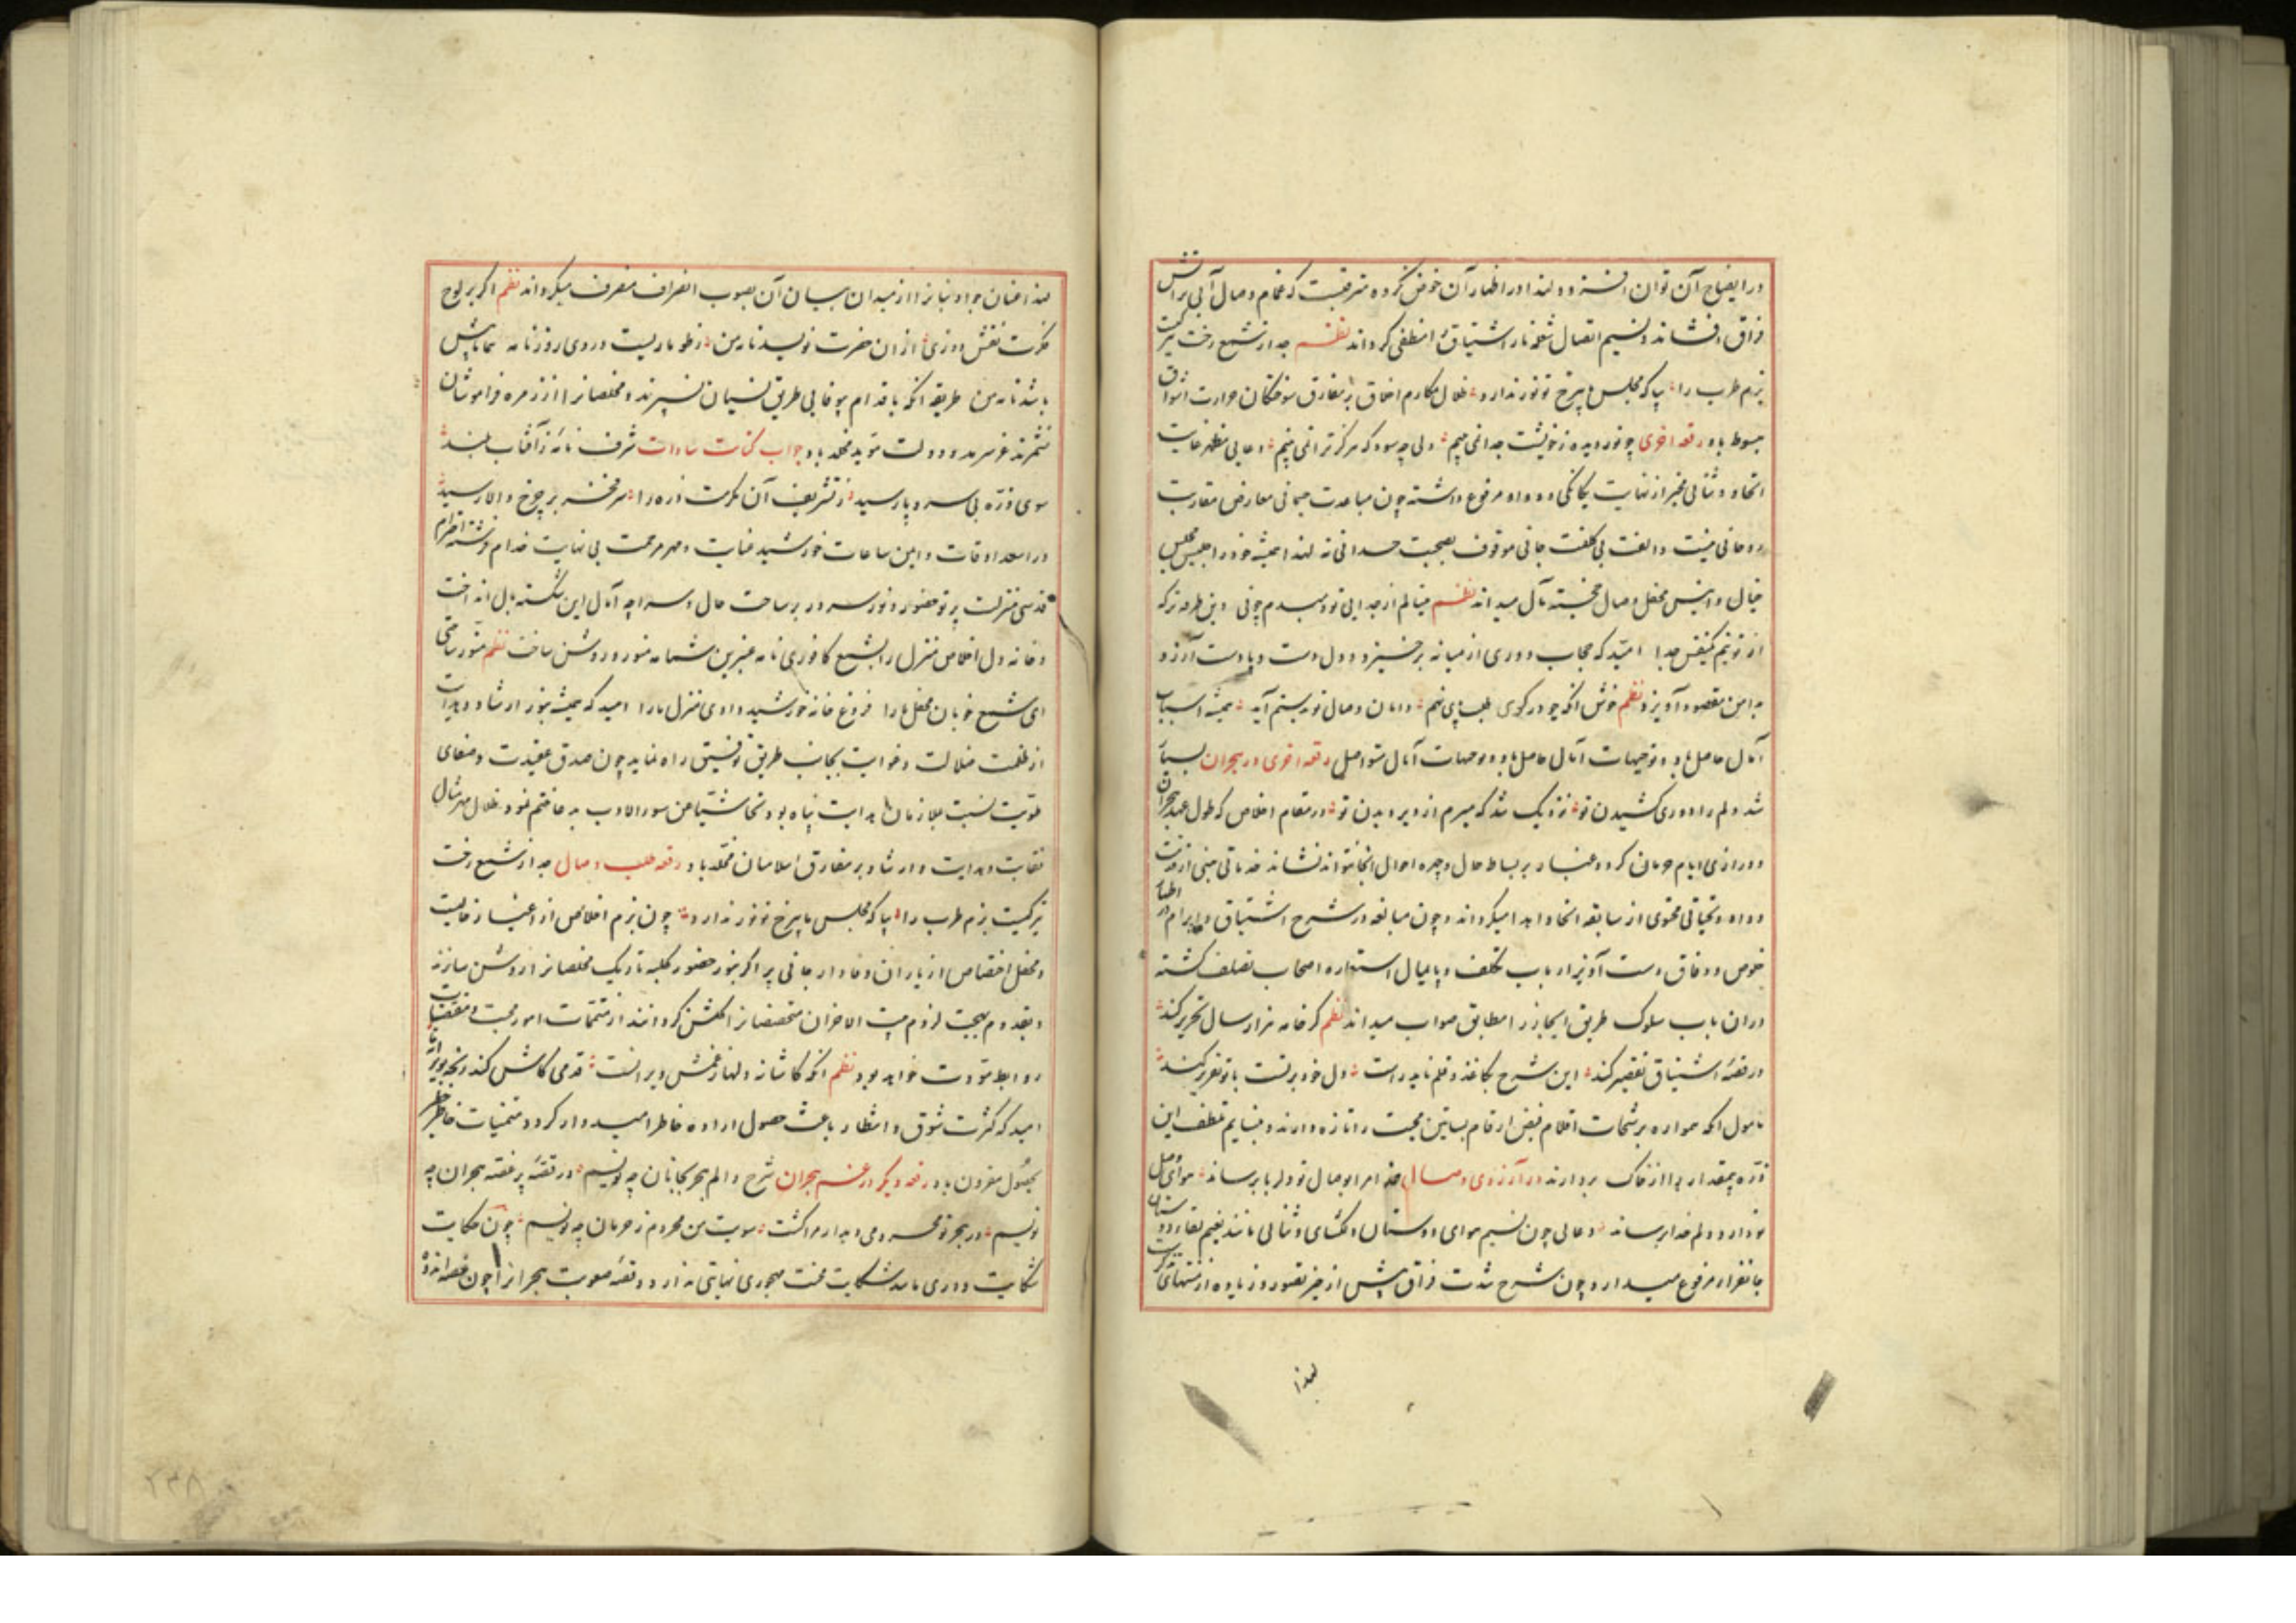 در ایضاح آن توان افشرد و لهذا در اظهار آن خوض نکرده مترقبست که غمام وصال آبی بر آتش
فراق افشاند و نسیم اتصال شعله نار اشتیاق را منطفی کرداند نظم جدا ز شمع رخت تیرکیست
بزم طرب را بیا که مجلس ما بی رخ تو نور ندارد ظلال مکارم اخلاق بر مفارق سوختکان حرارت اشواق
مبسوط باد رقعه اخری چو نور دیده ز خویشت جدا نمی بینم ولی چه سود که هرکز ترا نمی بینم دعایی مظهر غایت
اتحاد و ثنائی مخبر از نهایت یکانکی و وداد مرفوع داشته چون مباعدت جسمانی معارض مقاربت
روحانی نیست و الفت بی کلفت جانی موقوف بصحبت جسدانی نه لهذا همیشه خود را جلیس مجلس
خیال و انیس محفل وصال خجسته مآل میداند نظم مینالم از جدایی تو دمبدم چونی وین طرفه تر که
از تو نیم یکنفس جدا امید که حجاب دوری از میانه برخیزد و دل دست و پا دست آرزو
بدامن مقصود آویزد نظم خوش آنکه چو در کوی طلب پای نهم دامان وصال تو بدستم آید همیشه اسباب
آمال حاصل باد و توجیهات آمال حاصل باد و موجهات آمال متواصل رقعه اخری در هجران بسیار
شد دلم را دوری کشیدن تو نزدیک شد که میرم از دیر دیدن تو در مقام اخلاص که طول عهد هجران
و درازی ایام حرمان کرد و غبار بر بساط حال و چهره احوال آنجا نتواند نشاند خدماتی مبنی از فرط
وداد و تحیاتی محتوی از سابقه اتحاد اهدا میکرداند و چون مبالغه در شرح اشتیاق و ابرام در اظهار
خلوص و وفاق دست آویز ارباب تکلف و پایمال استعاره اصحاب تصلف کشته
در آن باب سلوک طریق ایجاز را مطابق صواب میداند نظم کر خامه هزار سال تحریر کند
در قصه اشتیاق تقصیر کند این شرح بکاغذ و قلم ناید راست دل خود برتست با تو تقریر کند
مأمول آنکه همواره برشحات اقلام فیض ارقام بساتین محبت را تازه دارند و بنسایم تلطف این
ذره بیمقدار را از خاک بردارند در آرزوی وصال خدا مرا بوصال تو دلربا برساند هوای وصل
تو دارد دلم خدا برساند دعائی چون نسیم هوای دوستان دلکشای و ثنائی مانند نعیم لقاء دوستان
جانفزا مرفوع میدارد و چون شرح شدت فراق بیش از حیز تصور و زیاده از منتهای
لهذا
لهذا عنان جواد بیان را از میدان بیان آن بصوب انصراف منصرف میکرداند نظم اکر بر لوح
مکرمت نقش وزی از آن حضرت نویسد نامه من طوماریست در وی روزنامه
باشد نامه من طریقه آنکه باقدام بیوفایی طریق نسیان نسپرند و مخلصان را از زمره فراموشان
نشمرند عز سرمد و دولت مؤید مخلد باد جواب کتابت سادات شرف نامه ز آفتاب بلند
سوی ذره بی سر و پا رسید ز تشریف آن مکرمت ذره را سر مفخر بر چرخ والا رسید
در اسعد اوقات و ایمن ساعات خورشید عنایت و مهر مرحمت بی نهایت خدام فرشته احترام
قدسی منزلت پرتو حضور و نور سرور بر ساحت حال و سراچه آمال این شکسته بال انداخت
و خانه دل اخلاص منزل را بشمع کافوری نامه عنبرین شمامه منور و روشن ساخت نظم منور ساختی
ای شمع خوبان محفل ما را فروغ خانه خورشید دادی منزل ما را امید که همیشه بنور ارشاد و هدایت
از ظلمت ضلالت و غوایت بجانب طریق توفیق راه نماید چون صدق عقیدت و صفای
طویت نسبت بملازمان هدایت پناه بود تحاشیا من سوء الادب بدعا ختم نمود ظلال مهر مثال
نقابت و هدایت و ارشاد بر مفارق اسلامیان مخلد باد رقعه طلب وصال جدا ز شمع رخت
تیرکیست بزم طرب را بیا که مجلس ما بی رخ تو نور ندارد چون بزم اخلاص از اغیار خالیست
و محفل اختصاص از یاران وفادار جانی پر اکر بنور حضور کلبه تاریک مخلصان را روشن سازند
و بقدوم بهجت لزوم بیت الاحزان متخصصان را کلشن کردانند از متممات امور محبت و مقتضیات
روابط مودت خواهد بود نظم آنکه کاشانه دلها ز غمش ویرانست قدمی کاش کند رنجه
امید که کثرت شوق و انتظار باعث حصول اراده خاطر امیدوار کردد و متمنیات خاطر خطیر
بحصول مقرون باد رقعه دیکر در غم هجران شرح الم هجر بجانان چه نویسم در قصه پر غصه هجران چه
نویسم در هجر تو محرومی دیدار مرا کشت سویت من محروم ز حرمان چه نویسم چون حکایت
شکایت دوری مانند شکایت محنت مهجوری نهایتی ندارد و قصه صعوبت هجران را چون غصه اندوه